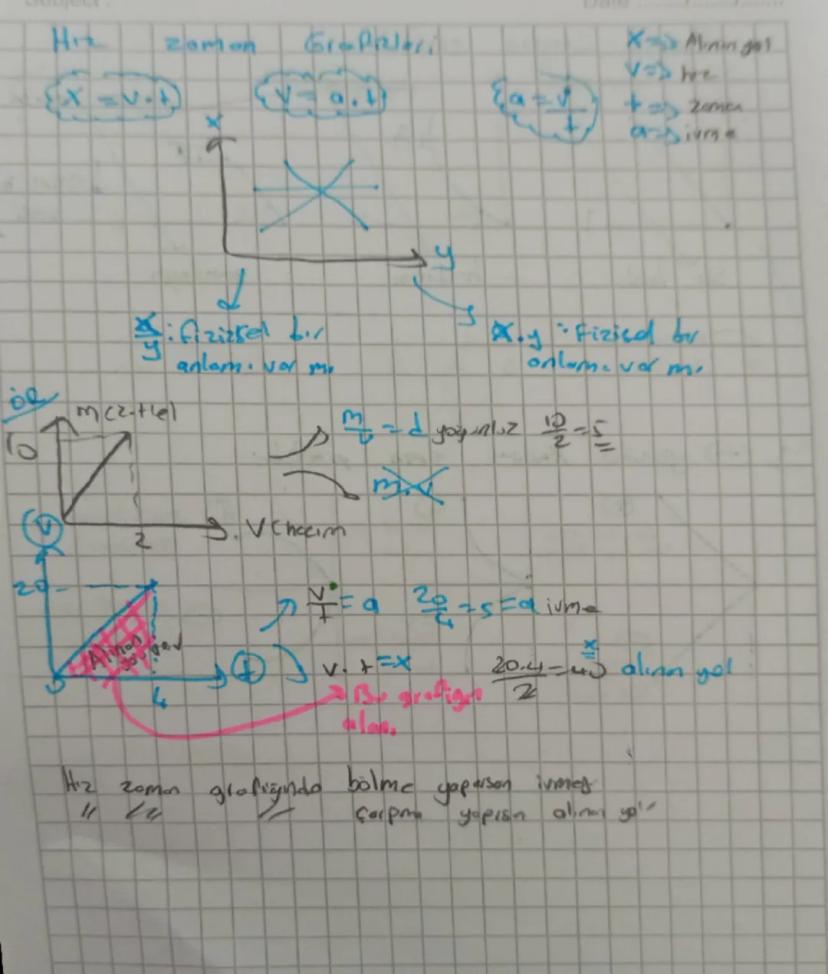 Hız zaman Grafikleri
x => Alınan yol
v => hız
t => zaman
a => ivme
x = v.t
v = a.t
a = v/t
x
y
x/y : fiziksel bir anlamı var mı
x.y : fiziksel bir anlamı var mı
ör
m(kütle)
10
2
V(hacim
m/v = d yoğunluk 10/2 = 5
m.v
v
20
4
t
0
Alınan yol
v/t = a 20/4 = 5 = a ivme
v.t = x 20.4/2 = 40 x alınan yol
Bu grafiğin
alanı
Hız zaman grafiğinde bölme yaparsan ivme
" " " çarpma yaparsın alınan yol